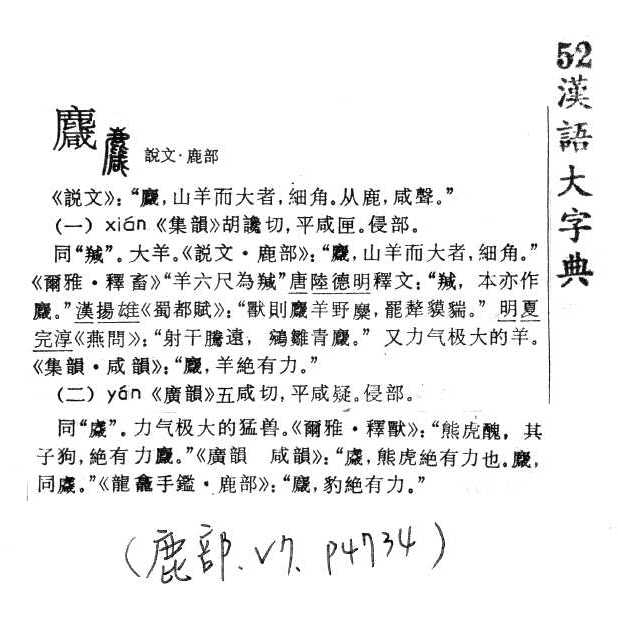 52漢語大字典
麙
說文·鹿部
《説文》：“麙，山羊而大者，細角。从鹿，咸聲。”
(一) xián《集韻》胡讒切，平咸匣。侵部。
同“羬”。大羊。《説文·鹿部》：“麙，山羊而大者，細角。”
《爾雅·釋畜》“羊六尺為羬”唐陸德明釋文：“羬，本亦作
麙。”漢揚雄《蜀都賦》：“獸則麙羊野麋，罷犛貘貒。” 明夏
完淳《燕問》：“射干騰遠，鵷雛青麙。” 又力气极大的羊。
《集韻·咸韻》：“麙，羊絶有力。”
(二) yán《廣韻》五咸切，平咸疑。侵部。
同“䖔”。力气极大的猛兽。《爾雅·釋獸》：“熊虎醜，其
子狗，絶有力麙。”《廣韻 咸韻》：“䖔，熊虎絶有力也。麙，
同䖔。”《龍龕手鑑·鹿部》：“麙，豹絶有力。”
(鹿部、V7、P4734)